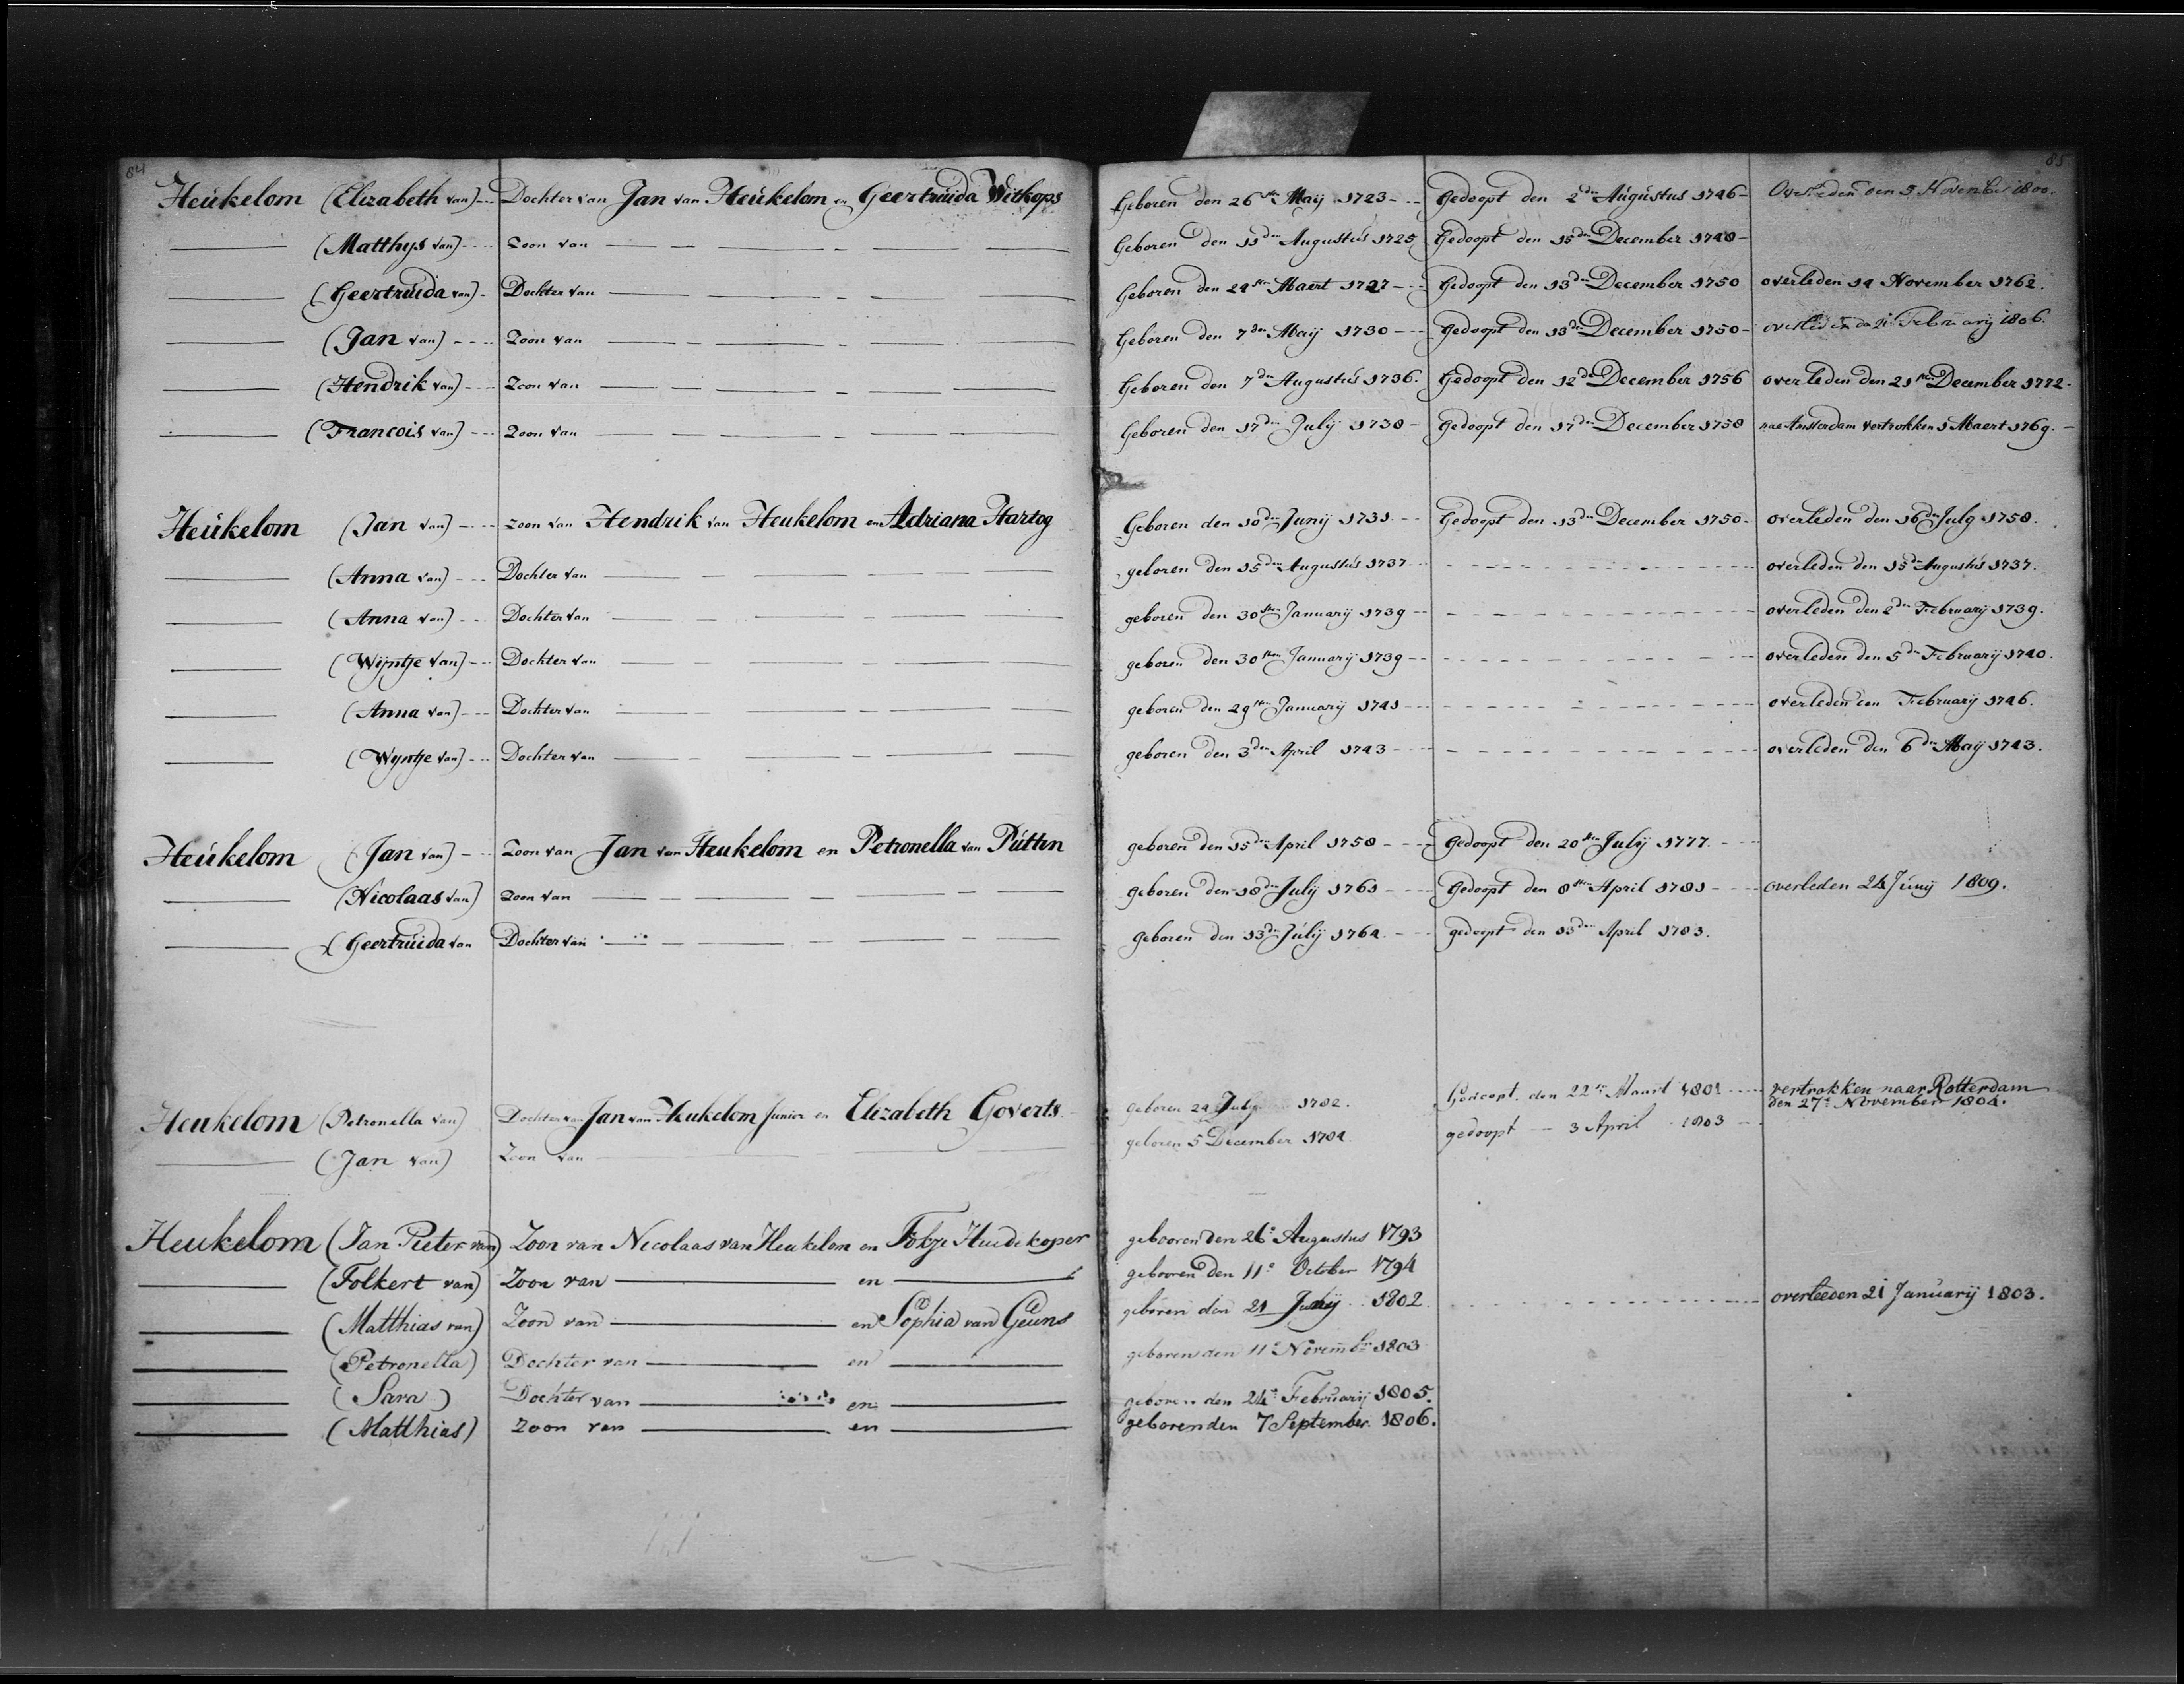 84
85
Heukelom (Elizabeth van) Dochter van Jan van Heukelom en Geertruida Withops Geboren den 26sten Maij 1723 Gedoopt den 2den Augustus 1746 Overleden den 5 November 1800.
(Matthys van) Zoon van Geboren den 11den Augustus 1725 Gedoopt den 15den December 1748
(Geertruida van) Dochter van Geboren den 24sten Maert 1727 Gedoopt den 13den December 1750 overleden 14 November 1762.
(Jan van) Zoon van Geboren den 7den Maij 1730 Gedoopt den 13den December 1750 overleden den Februarij 1806.
(Hendrik van) Zoon van Geboren den 7den Augustus 1736. Gedoopt den 12den December 1756 overleden den 21sten December 1772.
(Francois van) Zoon van Geboren den 17den Julij 1738 Gedoopt den 17den December 1758 nae Amsterdam vertrokken 1 Maert 1769.
Heukelom (Jan van) zoon van Hendrik van Heukelom en Adriana Hartog Geboren den 10den Junij 1731. Gedoopt den 13den December 1750. overleden den 16den July 1758.
(Anna van) Dochter van geboren den 15den Augustus 1737 overleden den 15den Augustus 1737.
(Anna van) Dochter van geboren den 30sten Januarij 1739 overleden den 2den February 1739.
(Wijntje van) Dochter van geboren den 30sten Januarij 1739 overleden den 5den Februarij 1740.
(Anna van) Dochter van geboren den 29sten Januarij 1741 overleden den Februarij 1746.
(Wyntje van) Dochter van geboren den 3den April 1743 overleden den 6den Maij 1743.
Heukelom (Jan van) Zoon van Jan van Heukelom en Petronella van Putten geboren den 15den April 1758 Gedoopt den 20sten Julij 1777.
(Nicolaas van) Zoon van geboren den 18den Julij 1761 Gedoopt den 8sten April 1781 overleden 24 Junij 1809.
(Geertruida van Dochter van Geboren den 13den Julij 1764. gedoopt den 13den April 1783.
Heukelom (Petronella van) Dochter van Jan van Heukelom Junior en Elizabeth Goverts geboren 24 July 1782. Gedoopt den 22e Maart 1801 vertrokken naar Rotterdam
den 27e November 1804.
(Jan van) Zoon van geboren 5 December 1784. gedoopt 3 April 1803
Heukelom (Jan Pieter van) Zoon van Nicolaas van Heukelom en Fokje Huidekoper gebooren den 26e Augustus 1793
(Folkert van) Zoon van en gebooren den 11e October 1794
(Matthias van) Zoon van en Sophia van Geuns geboren den 21 1802. overleeden 21 Januarij 1803.
(Petronella) Dochter van en geboren den 11e Novembr 1803
(Sara) Dochter van en geboren den 24e Februarij 1805.
(Matthias) Zoon van en geboren den 7 September 1806.